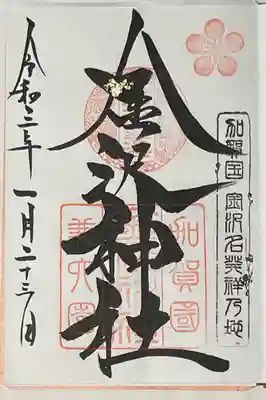 加賀国 金沢名発祥乃地
金沢神社
加賀國
兼六園
令和三年一月二十三日